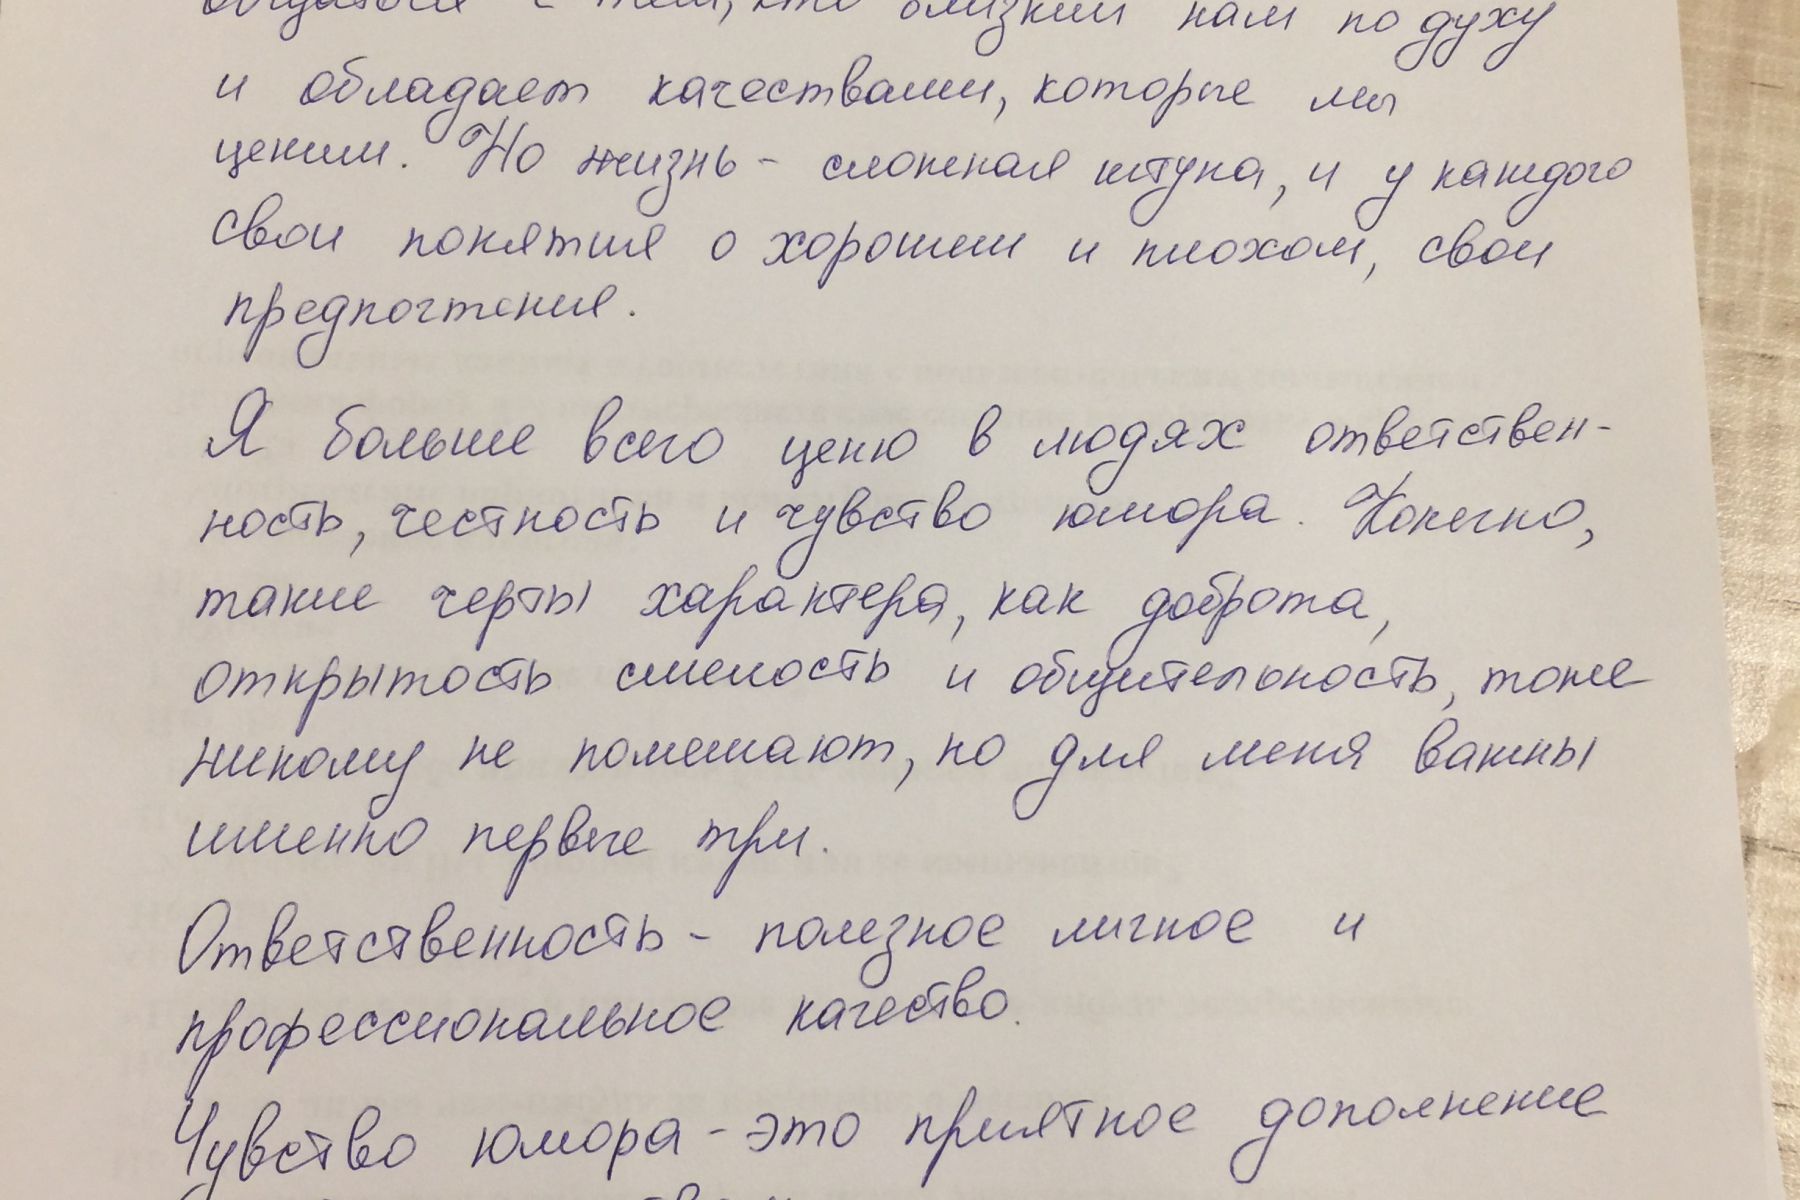 общаться с тем, кто близкий нам по духу
и обладает качествами, которые мы
ценим. Но жизнь - сложная штука, и у каждого
свои понятия о хорошем и плохом, свои
предпочтения.
Я больше всего ценю в людях ответствен-
ность, честность и чувство юмора. Конечно,
такие черты характера, как доброта,
открытость смелость и общительность, тоже
никому не помешают, но для меня важны
именно первые три.
Ответственность - полезное личное и
профессиональное качество.
Чувство юмора - это приятное дополнение